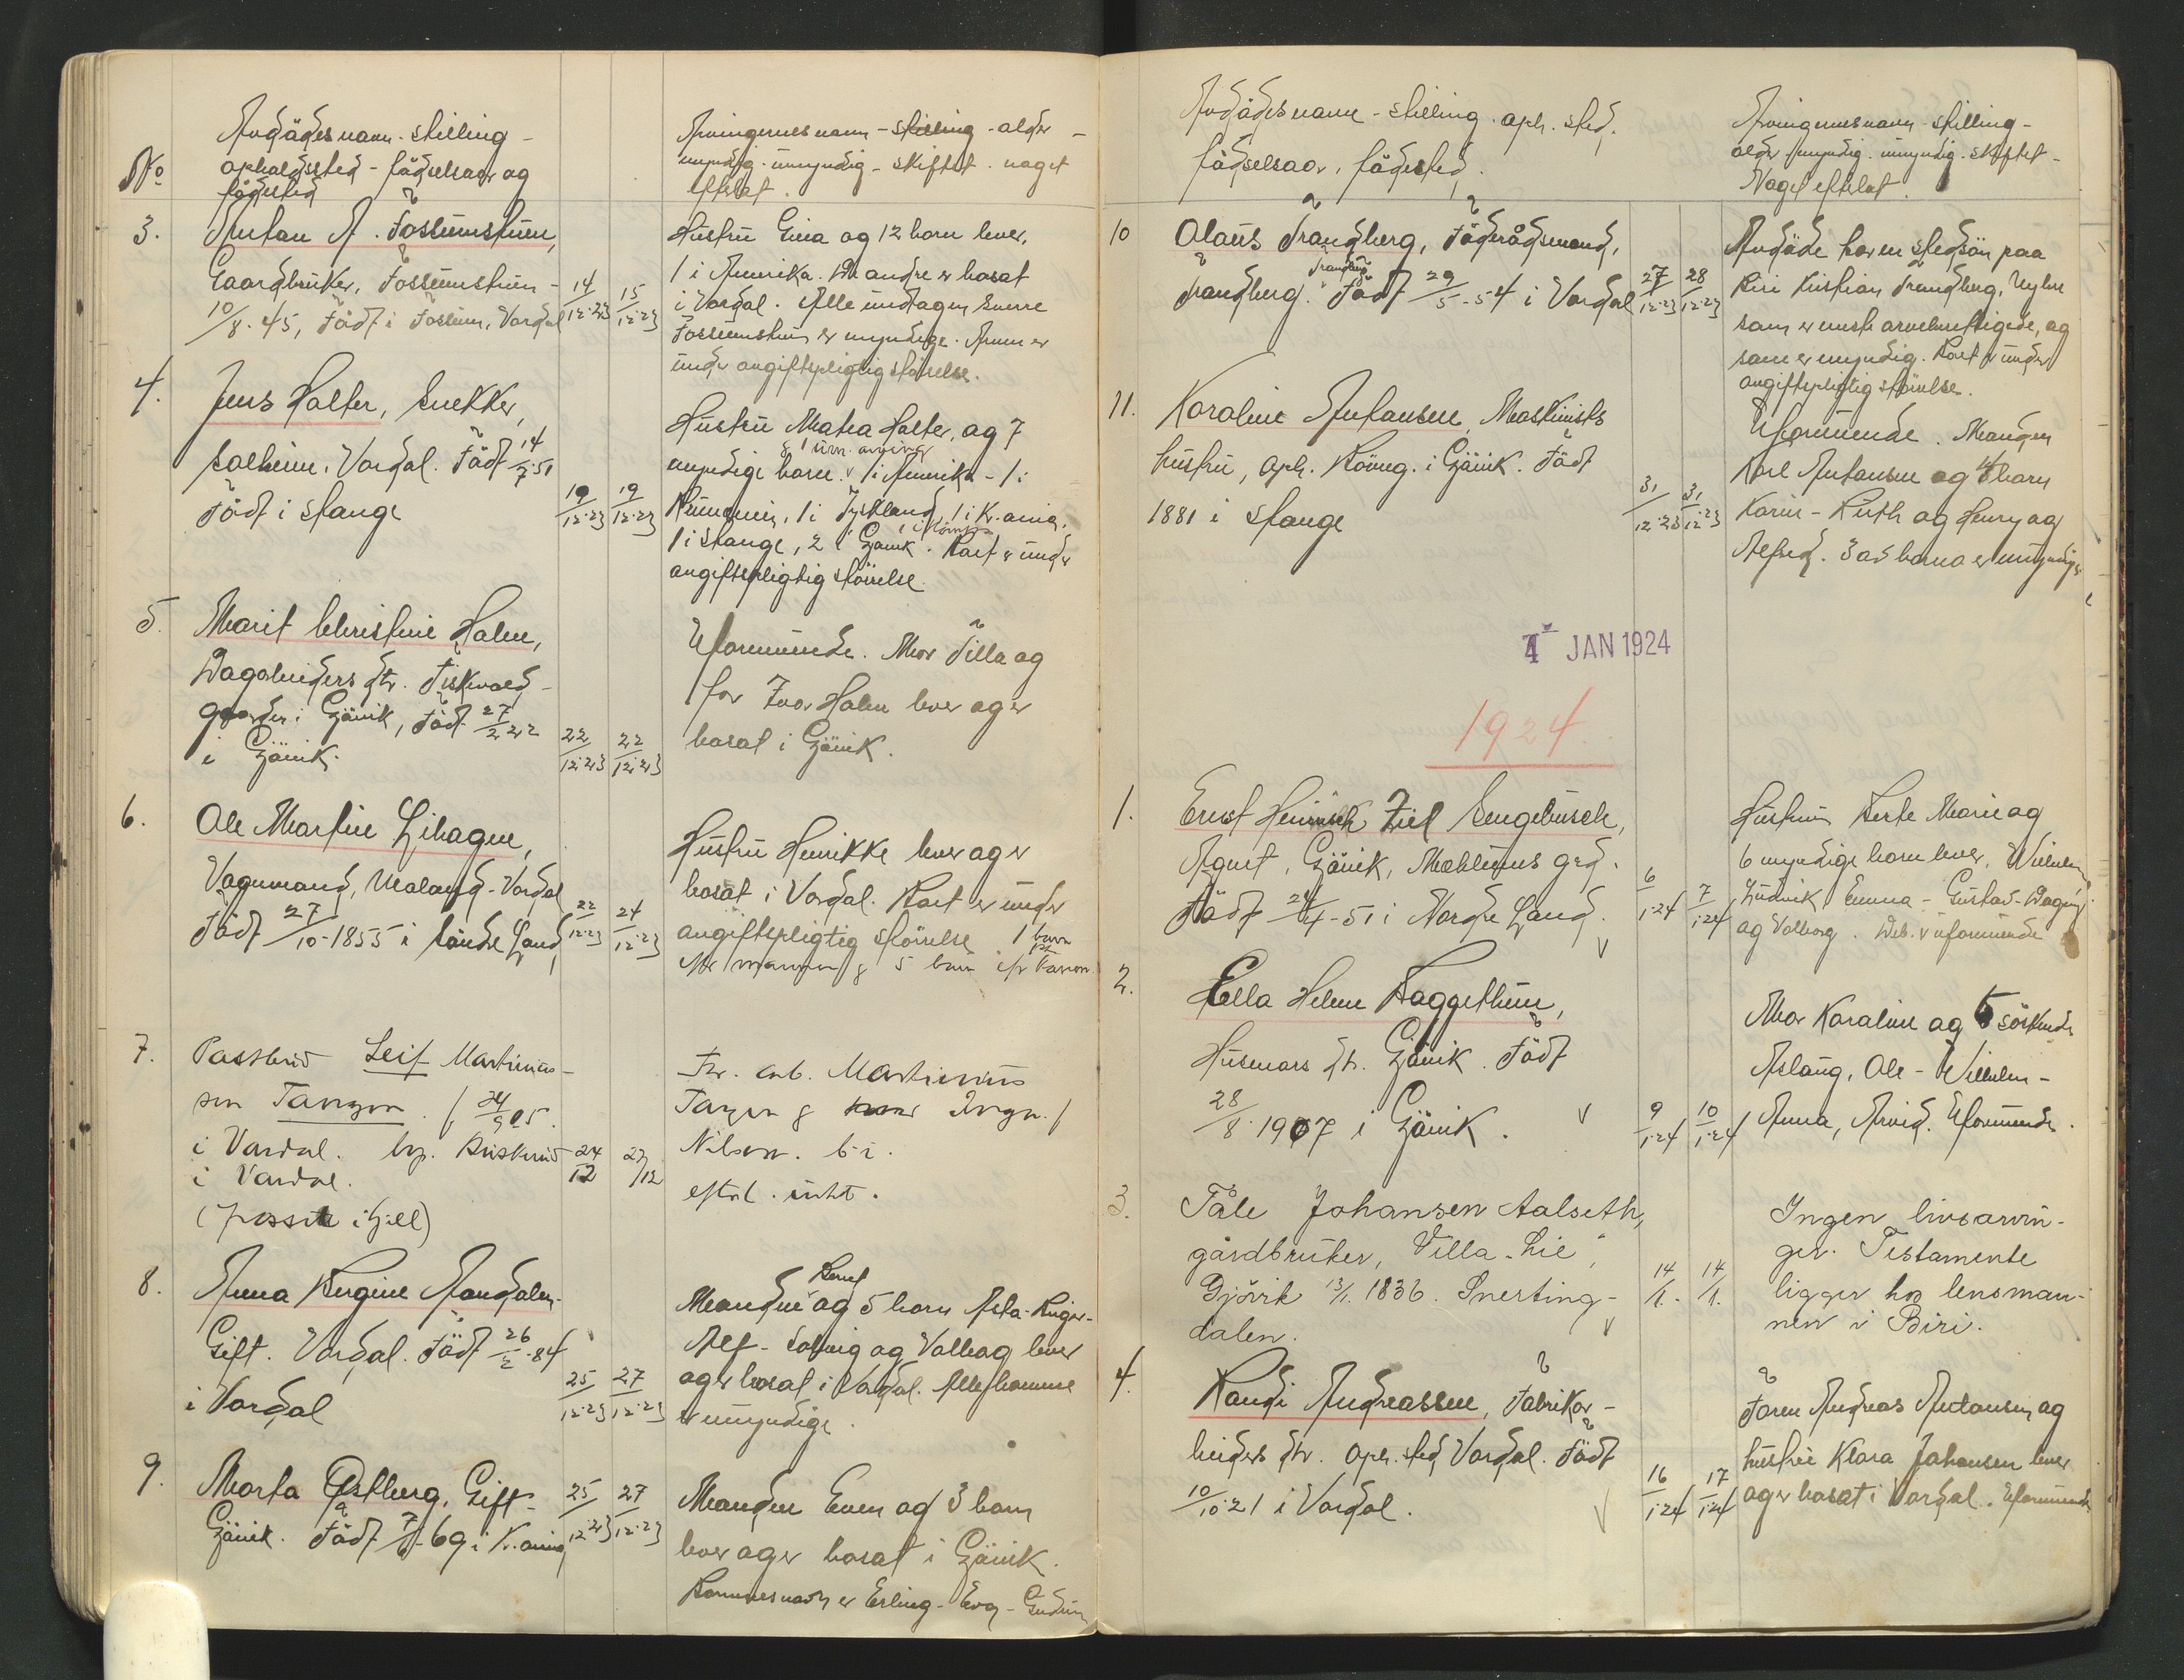 No
Avdødes navn - stilling -
opholdssted - fødselsaar og
fødested
Arvingernes navn - stilling - alder -
myndig - umyndig - skiftet - noget
efterlat.
3.
Anton A. Fossumstuen,
Gaardbruker, Fossumstuen -
10/8-45, Født i Fossum, Vardal
14/12-23
15/12-23
Hustru Gina og 12 barn lever,
1 i Amerika. De andre er bosat
i Vardal. Alle undtagen Sverre
Fossumstuen er myndige. Arven er
under avgiftspligtig størrelse.
4.
Jens Holter, Snekker,
Solheim, Vardal. Født 14/7-51
Født i Stange
19/12-23
19/12-23
Hustru Mathea Holter, og 7
myndige barn. 1 i Amerika - 1 i
1 i Tyskland, 1 i Kr.ania,
1 i Stange, 2 i Gjøvik. Boet er under
avgiftspligtig størrelse.
5.
Marit Christine Holm,
Dagarbeiders dtr. Fiskvold-
gaarden i Gjøvik, Født 27/2 22
i Gjøvik.
22/12-23
22/12-23
Uformuende. Mor Tilla og
far Ivar Holm lever og er
bosat i Gjøvik.
6.
Ole Martin Lihagen,
Vognmand, Vardal
Født 27/10-1855 i Søndre Land,
22/12-23
24/12-23
Hustru Henrikke lever og er
bosat i Vardal. Boet er under
avgiftspligtig størrelse. 1 barn
5 barn
7.
Leif Martinius-
sen Tangen. f 24/9 05.
i Vardal.
i Vardal.
(frosset ihjel)
24/12
27/12
Martinius
Tangen
Nilsen.
efterl. intet.
8.
Anna Bergine Moudalen -
Gift. Vardal. Født 26/2-84
i Vardal
25/12-23
27/12-23
Manden Bernt og 5 barn Asta - Inger -
Alf - Solveig og Valborg lever
og er bosat i Vardal. Alle sammen
er umyndige.
9.
Marta Østberg, Gift -
Gjøvik. Født 7/6-69 i Kr.ania
25/12-23
27/12-23
Manden Even og 3 barn
lever og er bosat i Gjøvik.
Barnenes navn er Erling - Eva - Gudrun
Avdødes navn - stilling - oph. sted,
fødselsaar, fødested.
Arvingernes navn - stilling -
alder - myndig - umyndig - skiftet -
Noget efterlat.
10
Olaus Trandberg, Føderådsmand,
Trandberg. Født 29/5-54 i Vardal
27/12-23
28/12-23
Avdøde har en stedsøn paa
Biri Kristian Trandberg,
som er eneste arveberettigede, og
som er myndig. Boet er under
avgiftspligtig størrelse.
11.
Karoline Antonsen, Maskinists
hustru, oph. i Gjøvik. Født
1881 i Stange
31/12-23
31/12-23
Uformuende. Manden
Karl Antonsen og 4 barn
Karin - Ruth og Henry og
Alfred. 3 av barna er umyndige
4 JAN 1924
1924.
1.
Ernst Heinrich Ziel Sengebusch,
Agent, Gjøvik, Mæhlums grd.
Født 24/4-51 i Nordre Land.
6/1-24
7/1-24
Hustruen Berte Marie og
6 myndige barn lever, Wilhelm,
Ludvik Emma - Gustav - Dagny
og Valborg. Deb. uformuende
2.
Ella Helene Baggethun,
Husmors dtr. Gjøvik. Født
28/8-1907 i Gjøvik.
9/1-24
10/1-24
Mor Karoline og 5 søskende
Aslaug, Ole - Wilhelm -
Anna, Arvid. Uformuende.
3.
Påle Johansen Aalseth,
gårdbruker, "Villa Lie",
Gjøvik 13/1. 1836. Snerting-
dalen.
14/1.
14/1.
Ingen livsarvin-
ger. Testamente
ligger hos lensman-
nen i Biri.
4.
Randi Andreassen, Fabrikar-
beiders dtr. oph. sted Vardal. Født
10/10-21 i Vardal.
16/1-24
17/1-24
Faren Andreas Antonsen og
hustru Klara Johansen lever
og er bosat i Vardal. Uformuende